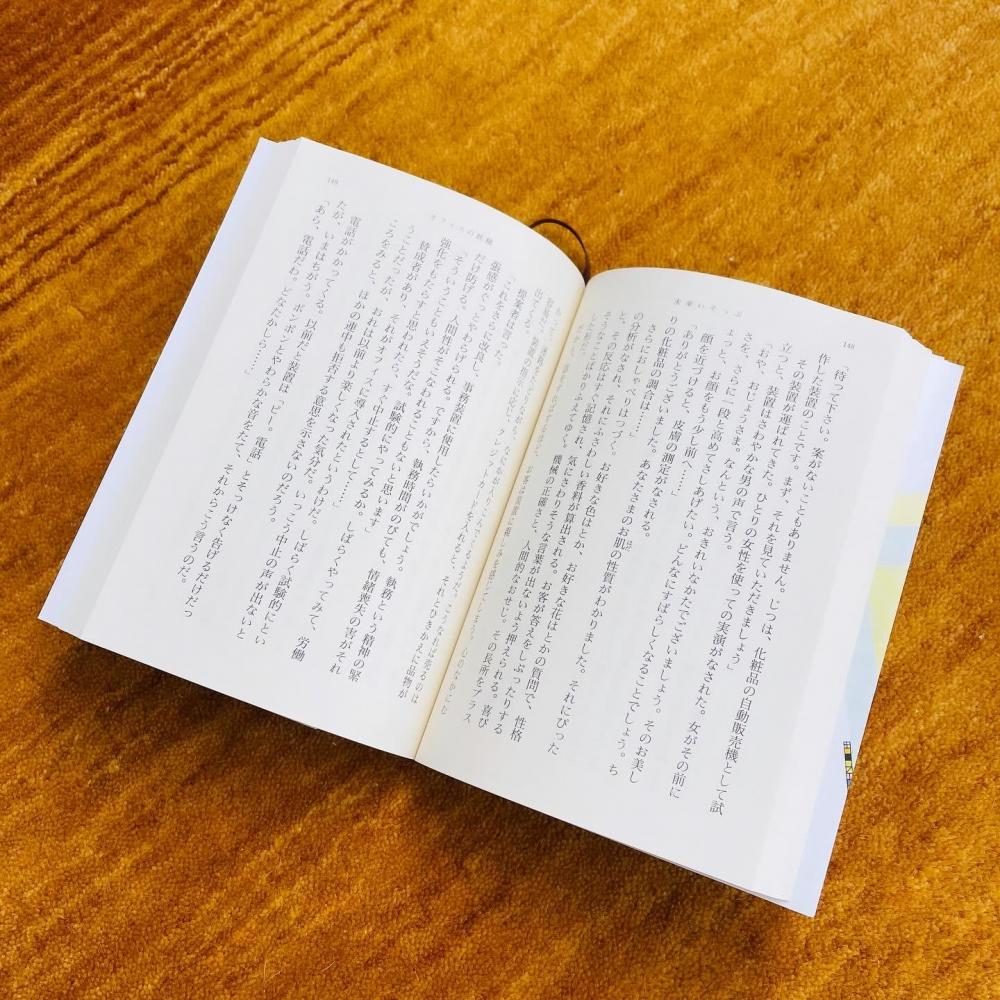 148
未来いそっぷ
「待って下さい。案がないこともありません。じつは、化粧品の自動販売機として試
作した装置のことです。まず、それを見ていただきましょう」
その装置が運ばれてきた。ひとりの女性を使っての実演がなされた。女がその前に
立つと、装置はさわやかな男の声で言う。
「おや、おじょうさま。なんという、おきれいなかたでございましょう。そのお美し
さを、さらに一段と高めてさしあげたい。どんなにすばらしくなることでしょう。ち
ょっと、お顔をもう少し前へ……」
顔を近づけると、皮膚の測定がなされる。
「ありがとうございました。あなたさまのお肌の性質がわかりました。それにぴった
はだ
りの化粧品の調合は……」
さらにおしゃべりはつづく。お好きな色はとか、お好きな花はとかの質問で、性格
の分析がなされ、それにふさわしい香料が算出される。お客が答えをしぶったりする
と、その反応はすぐ記憶され、気にさわりそうな言葉が出ないよう押えられる。喜び
そうなことばかりふえてゆく。機械の正確さと、人間的なおせじ。その長所をプラス
した形だった。
お客は装置に親しみを感じてしまう。心のなかにむ
149
オフィスの妖精
出てくる。
クレジットカードを入れると、それとひきかえに品物が
提案者は言った。
「これをさらに改良し、事務装置に使用したらいかがでしょう。執務という精神の緊
張感がぐっとやわらげられる。ですから、執務時間がのびても、情緒喪失の害がそれ
だけ防げる。人間性がそこなわれることもないと思います」
「そういうこともいえそうだな。試験的にやってみるか。しばらくやってみて、労働
強化をもたらすと思われたら、すぐ中止するとして……」
賛成者があり、それがオフィスに導入されたというわけだ。しばらく試験的にとい
うことだったが、おれは以前より楽しくなった気分だ。いっこう中止の声が出ないと
ころをみると、ほかの連中も拒否する意思を示さないのだろう。
電話がかかってくる。以前だと装置は「ピー。電話」とそっけなく告げるだけだっ
たが、いまはちがう。ポンポンとやわらかな音をたて、それからこう言うのだ。
「あら、電話だわ。どなたかしら……」